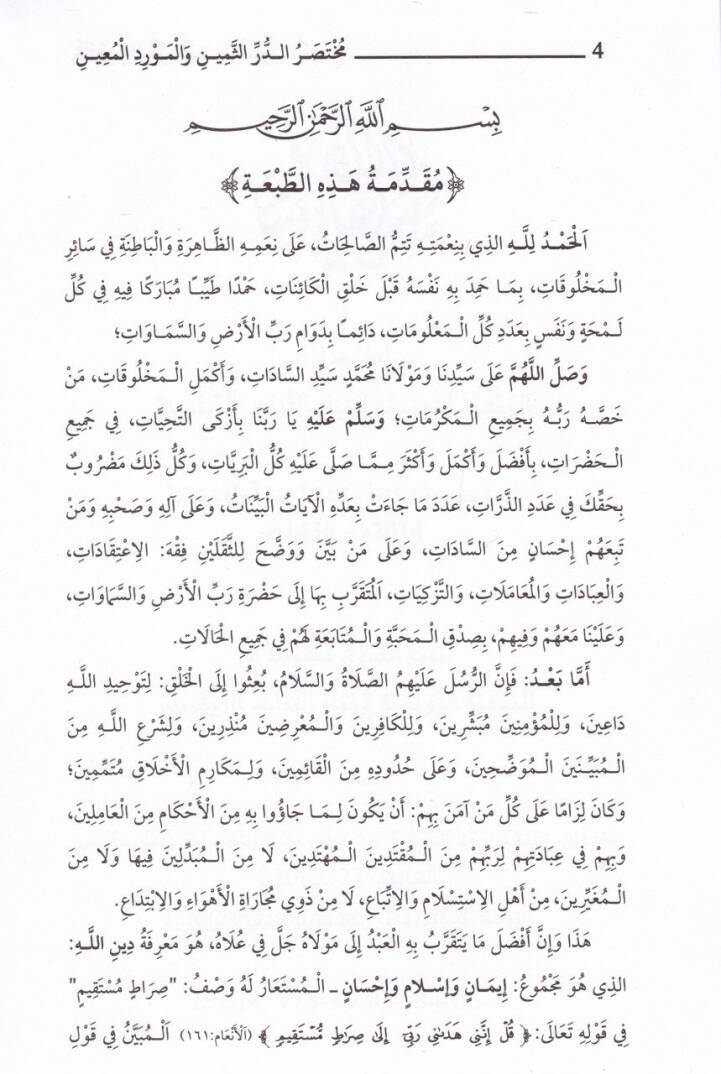 4 مُخْتَصَرُ الـدُّرِّ الثَّمِينِ وَالْمَوْرِدِ الْمُعِينِ
بِسْمِ اللَّهِ الرَّحْمَٰنِ الرَّحِيمِ
﴿مُقَدِّمَةُ هَذِهِ الطَّبْعَةِ﴾
اَلْحَمْدُ لِلَّهِ الذِي بِنِعْمَتِهِ تَتِمُّ الصَّالِحَاتُ، عَلَى نِعَمِهِ الظَّاهِرَةِ وَالْبَاطِنَةِ فِي سَائِرِ
الْـمَخْلُوقَاتِ، بِمَـا حَمِدَ بِهِ نَفْسَهُ قَبْلَ خَلْقِ الْكَائِنَاتِ، حَمْدًا طَيِّبًـا مُبَارَكًا فِيهِ فِي كُلِّ
لَـمْحَةٍ وَنَفَسٍ بِعَدَدِ كُلِّ الْـمَعْلُومَاتِ، دَائِمًـا بِدَوَامِ رَبِّ الْأَرْضِ وَالسَّمَـاوَاتِ؛
وَصَلِّ اللَّهُمَّ عَلَى سَيِّدِنَا وَمَوْلَانَا مُحَمَّدٍ سَيِّدِ السَّادَاتِ، وَأَكْمَلِ الْـمَخْلُوقَاتِ، مَنْ
خَصَّـهُ رَبُّـهُ بِـجَمِيعِ الْـمَكْرُمَاتِ؛ وَسَلِّمْ عَلَيْهِ يَا رَبَّنَا بِأَزْكَى التَّحِيَّاتِ، فِي جَمِيعِ
الْـحَضَرَاتِ، بِأَفْضَلَ وَأَكْمَلَ وَأَكْثَرَ مِـمَّـا صَلَّى عَلَيْهِ كُلُّ الْبَرِيَّاتِ، وَكُلُّ ذَلِكَ مَضْرُوبٌ
بِحَقِّكَ فِي عَدَدِ الذَّرَّاتِ، عَدَدَ مَا جَاءَتْ بِعَدِّهِ الْآيَاتُ الْبَيِّنَاتُ، وَعَلَى آلِهِ وَصَحْبِهِ وَمَنْ
تَبِعَهُمْ بِإِحْسَانٍ مِنَ السَّادَاتِ، وَعَلَى مَنْ بَيَّنَ وَوَضَّحَ لِلثَّقَلَيْنِ فِقْهَ: الِاعْتِقَادَاتِ،
وَالْعِبَادَاتِ وَالْمُعَامَلَاتِ، وَالتَّزْكِيَاتِ، اَلْمُتَقَرَّبِ بِهَا إِلَى حَضْرَةِ رَبِّ الْأَرْضِ وَالسَّمَاوَاتِ،
وَعَلَيْنَا مَعَهُمْ وَفِيهِمْ، بِصِدْقِ الْـمَحَبَّةِ وَالْـمُتَابَعَةِ لَهُمْ فِي جَمِيعِ الْحَالَاتِ.
أَمَّا بَعْدُ: فَإِنَّ الرُّسُلَ عَلَيْهِمُ الصَّلَاةُ وَالسَّلَامُ، بُعِثُوا إِلَى الْخَلْقِ: لِتَوْحِيدِ اللَّهِ
دَاعِينَ، وَلِلْمُؤْمِنِينَ مُبَشِّرِينَ، وَلِلْكَافِرِينَ وَالْـمُعْرِضِينَ مُنْذِرِينَ، وَلِشَرْعِ اللَّهِ مِنَ
الْـمُبَيِّنِينَ الْـمُوَضِّحِينَ، وَعَلَى حُدُودِهِ مِنَ الْقَائِمِينَ، وَلِـمَكَارِمِ الْأَخْلَاقِ مُتَمِّمِينَ؛
وَكَانَ لِزَامًا عَلَى كُلِّ مَنْ آمَنَ بِهِمْ: أَنْ يَكُونَ لِـمَـا جَاؤُوا بِهِ مِنَ الْأَحْكَامِ مِنَ الْعَامِلِينَ،
وَبِهِمْ فِي عِبَادَتِهِمْ لِرَبِّهِمْ مِنَ الْـمُقْتَدِينَ الْـمُهْتَدِينَ، لَا مِنَ الْـمُبَدِّلِينَ فِيهَا وَلَا مِنَ
الْـمُغَيِّرِينَ، مِنْ أَهْلِ الِاسْتِسْلَامِ وَالِاتِّبَاعِ، لَا مِنْ ذَوِي مُجَارَاةِ الْأَهْوَاءِ وَالِابْتِدَاعِ.
هَذَا وَإِنَّ أَفْضَلَ مَا يَتَقَرَّبُ بِهِ الْعَبْدُ إِلَى مَوْلَاهُ جَلَّ فِي عُلَاهُ، هُوَ مَعْرِفَةُ دِينِ اللَّهِ:
الذِي هُوَ مَجْمُوعُ: إِيمَـانٍ وَإِسْلَامٍ وَإِحْسَانٍ ـ الْـمُسْتَعَارُ لَهُ وَصْفُ: "صِرَاطٍ مُسْتَقِيمٍ"
فِي قَوْلِهِ تَعَالَى: ﴿ قُلْ إِنَّنِي هَدَىٰنِي رَبِّيَ إِلَىٰ صِرَاطٍ مُّسْتَقِيمٍ ﴾ (اَلْأَنْعَام:١٦١) اَلْـمُبَيَّنُ فِي قَوْلِ